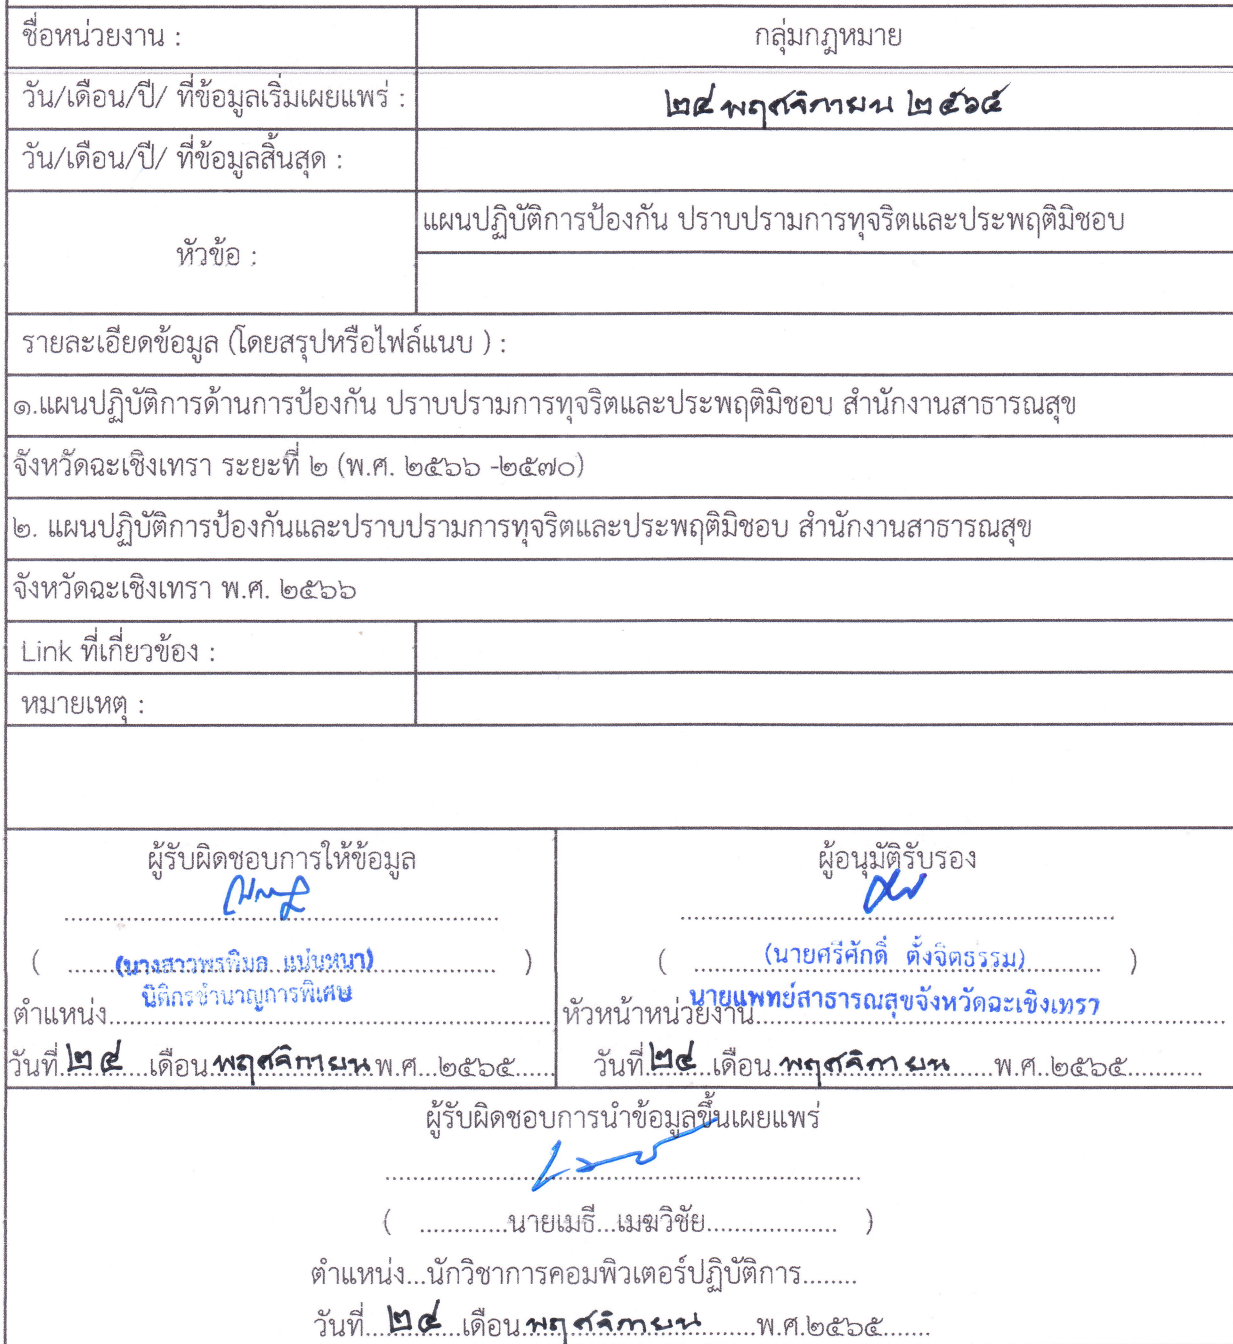 ชื่อหน่วยงาน : กลุ่มกฎหมาย
วัน/เดือน/ปี/ ที่ข้อมูลเริ่มเผยแพร่ : ๒๔ พฤศจิกายน ๒๕๖๕
วัน/เดือน/ปี/ ที่ข้อมูลสิ้นสุด :
หัวข้อ : แผนปฏิบัติการป้องกัน ปราบปรามการทุจริตและประพฤติมิชอบ
รายละเอียดข้อมูล (โดยสรุปหรือไฟล์แนบ ) :
๑.แผนปฏิบัติการด้านการป้องกัน ปราบปรามการทุจริตและประพฤติมิชอบ สำนักงานสาธารณสุข
จังหวัดฉะเชิงเทรา ระยะที่ ๒ (พ.ศ. ๒๕๖๖ -๒๕๗๐)
๒. แผนปฏิบัติการป้องกันและปราบปรามการทุจริตและประพฤติมิชอบ สำนักงานสาธารณสุข
จังหวัดฉะเชิงเทรา พ.ศ. ๒๕๖๖
Link ที่เกี่ยวข้อง :
หมายเหตุ :
ผู้รับผิดชอบการให้ข้อมูล
(นางสาวพรพิมล แน่นหนา)
นิติกรชำนาญการพิเศษ
ตำแหน่ง
วันที่ ๒๔ เดือน พฤศจิกายน พ.ศ. ๒๕๖๕
ผู้อนุมัติรับรอง
(นายศรีศักดิ์ ตั้งจิตธรรม)
นายแพทย์สาธารณสุขจังหวัดฉะเชิงเทรา
หัวหน้าหน่วยงาน
วันที่ ๒๔ เดือน พฤศจิกายน พ.ศ. ๒๕๖๕
ผู้รับผิดชอบการนำข้อมูลขึ้นเผยแพร่
( นายเมธี เมฆวิชัย )
ตำแหน่ง...นักวิชาการคอมพิวเตอร์ปฏิบัติการ........
วันที่ ๒๔ เดือน พฤศจิกายน พ.ศ.๒๕๖๕